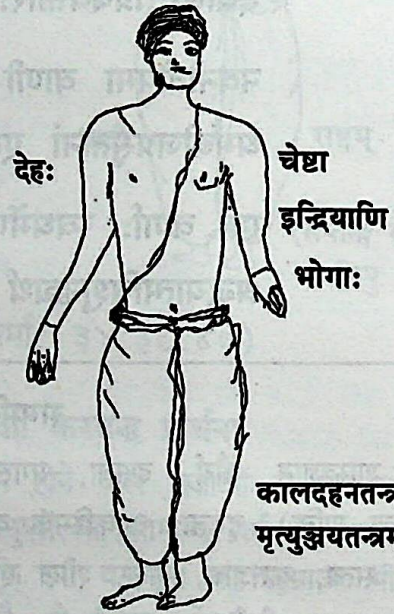 देहः
चेष्टा
इन्द्रियाणि
भोगाः
कालदहनतन्त्र
मृत्युञ्जयतन्त्रम